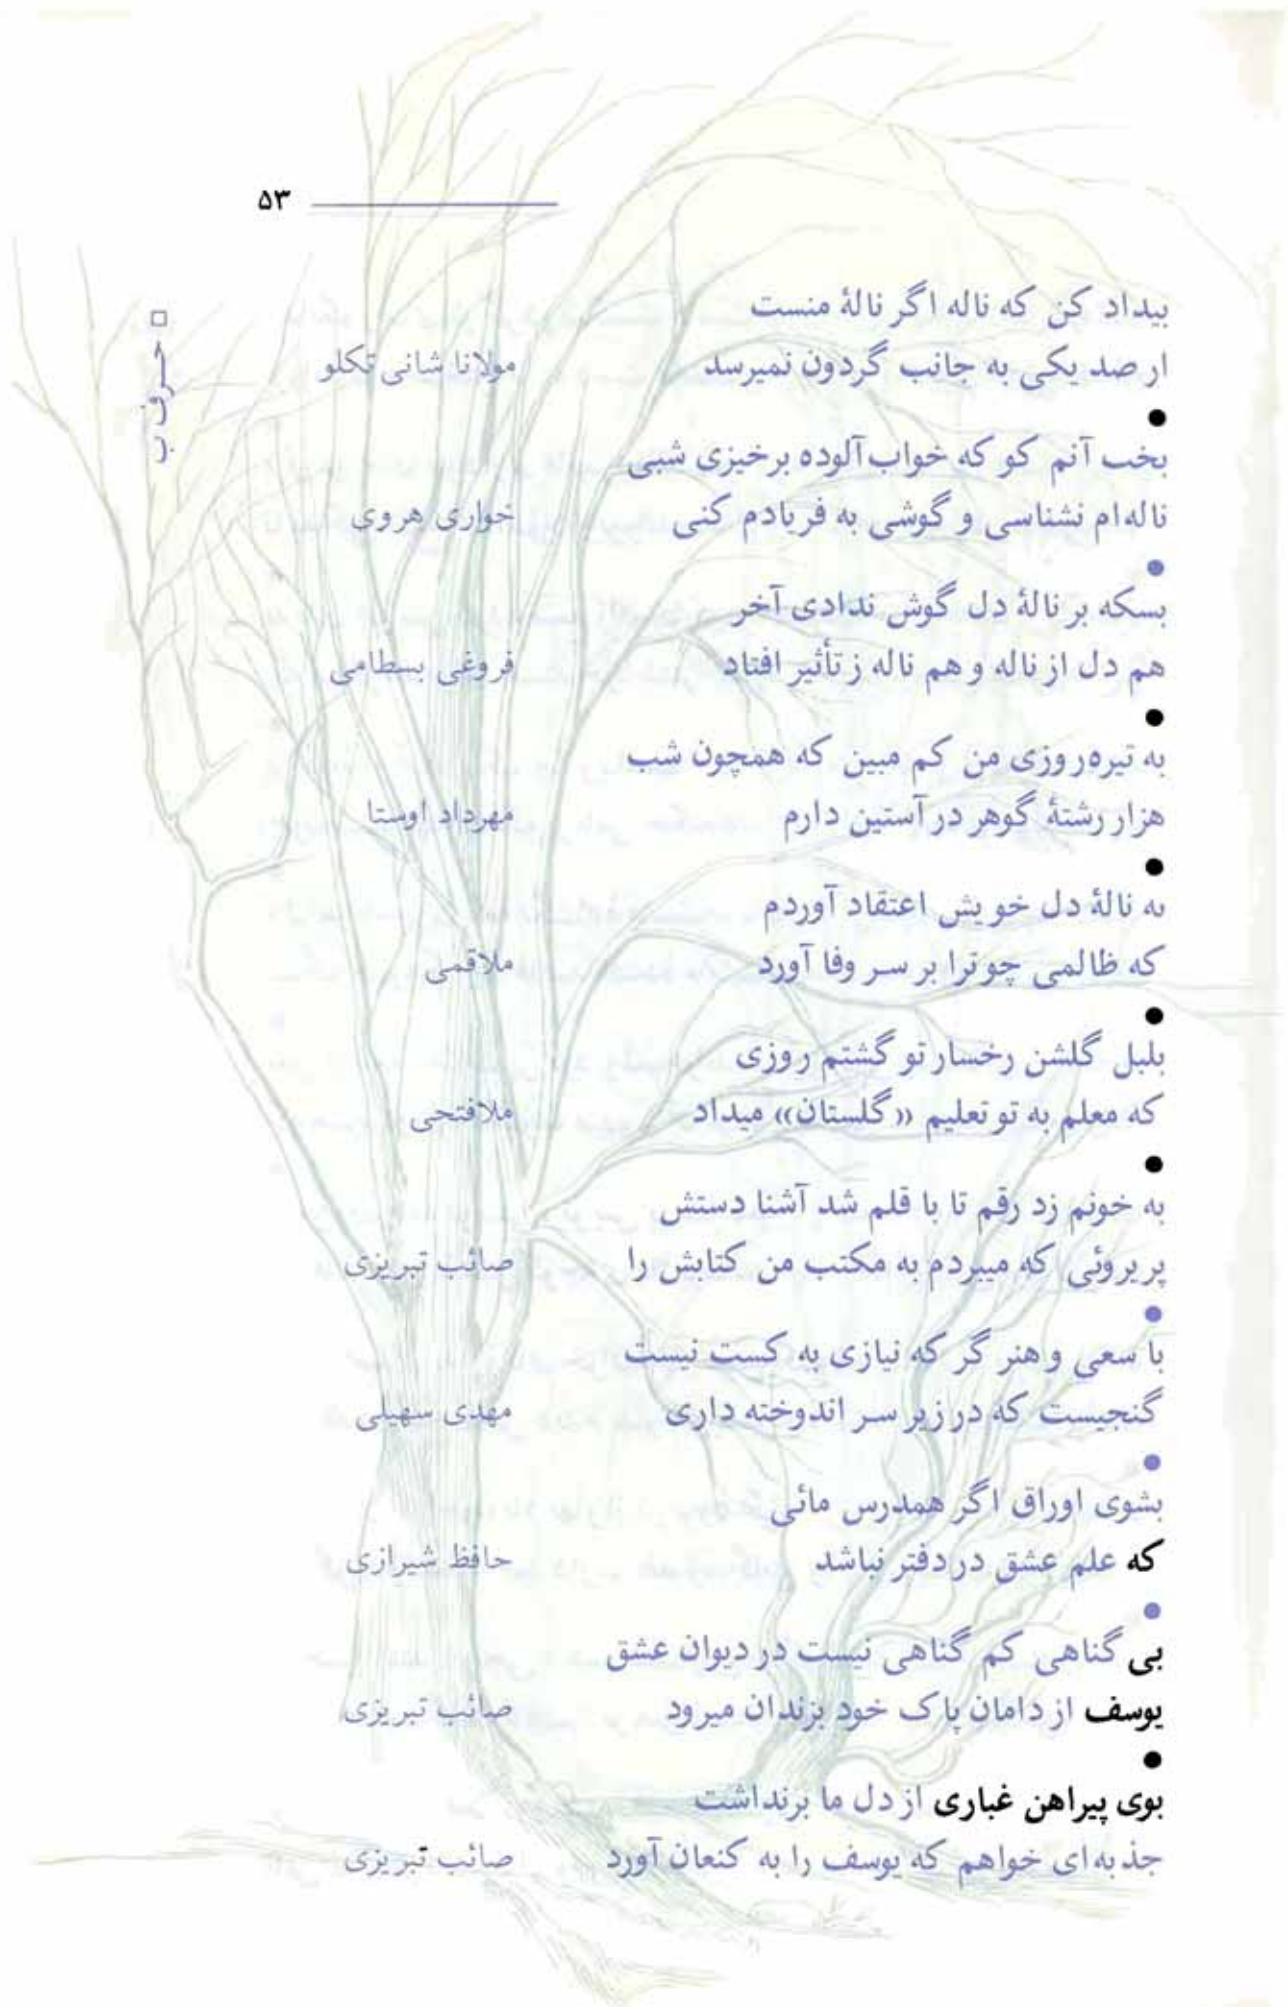 ۵۳
□ حرف ب
بیداد کن که ناله اگر نالهٔ منست
ار صد یکی به جانب گردون نمیرسد مولانا شانی تکلو
●
بخب آنم کو که خواب‌آلوده برخیزی شبی
ناله‌ام نشناسی و گوشی به فریادم کنی خواری هروی
●
بسکه بر نالهٔ دل گوش ندادی آخر
هم دل از ناله و هم ناله ز تأثیر افتاد فروغی بسطامی
●
به تیره‌روزی من کم مبین که همچون شب
هزار رشتهٔ گوهر در آستین دارم مهرداد اوستا
●
به نالهٔ دل خویش اعتقاد آوردم
که ظالمی چو ترا بر سر وفا آورد ملاقمی
●
بلبل گلشن رخسار تو گشتم روزی
که معلم به تو تعلیم «گلستان» میداد ملافتحی
●
به خونم زد رقم تا با قلم شد آشنا دستش
پریروئی که میبردم به مکتب من کتابش را صائب تبریزی
●
با سعی و هنر گر که نیازی به کست نیست
گنجیست که در زیر سر اندوخته داری مهدی سهیلی
●
بشوی اوراق اگر همدرس مائی
که علم عشق در دفتر نباشد حافظ شیرازی
●
بی گناهی کم گناهی نیست در دیوان عشق
یوسف از دامان پاک خود بزندان میرود صائب تبریزی
●
بوی پیراهن غباری از دل ما برنداشت
جذبه‌ای خواهم که یوسف را به کنعان آورد صائب تبریزی